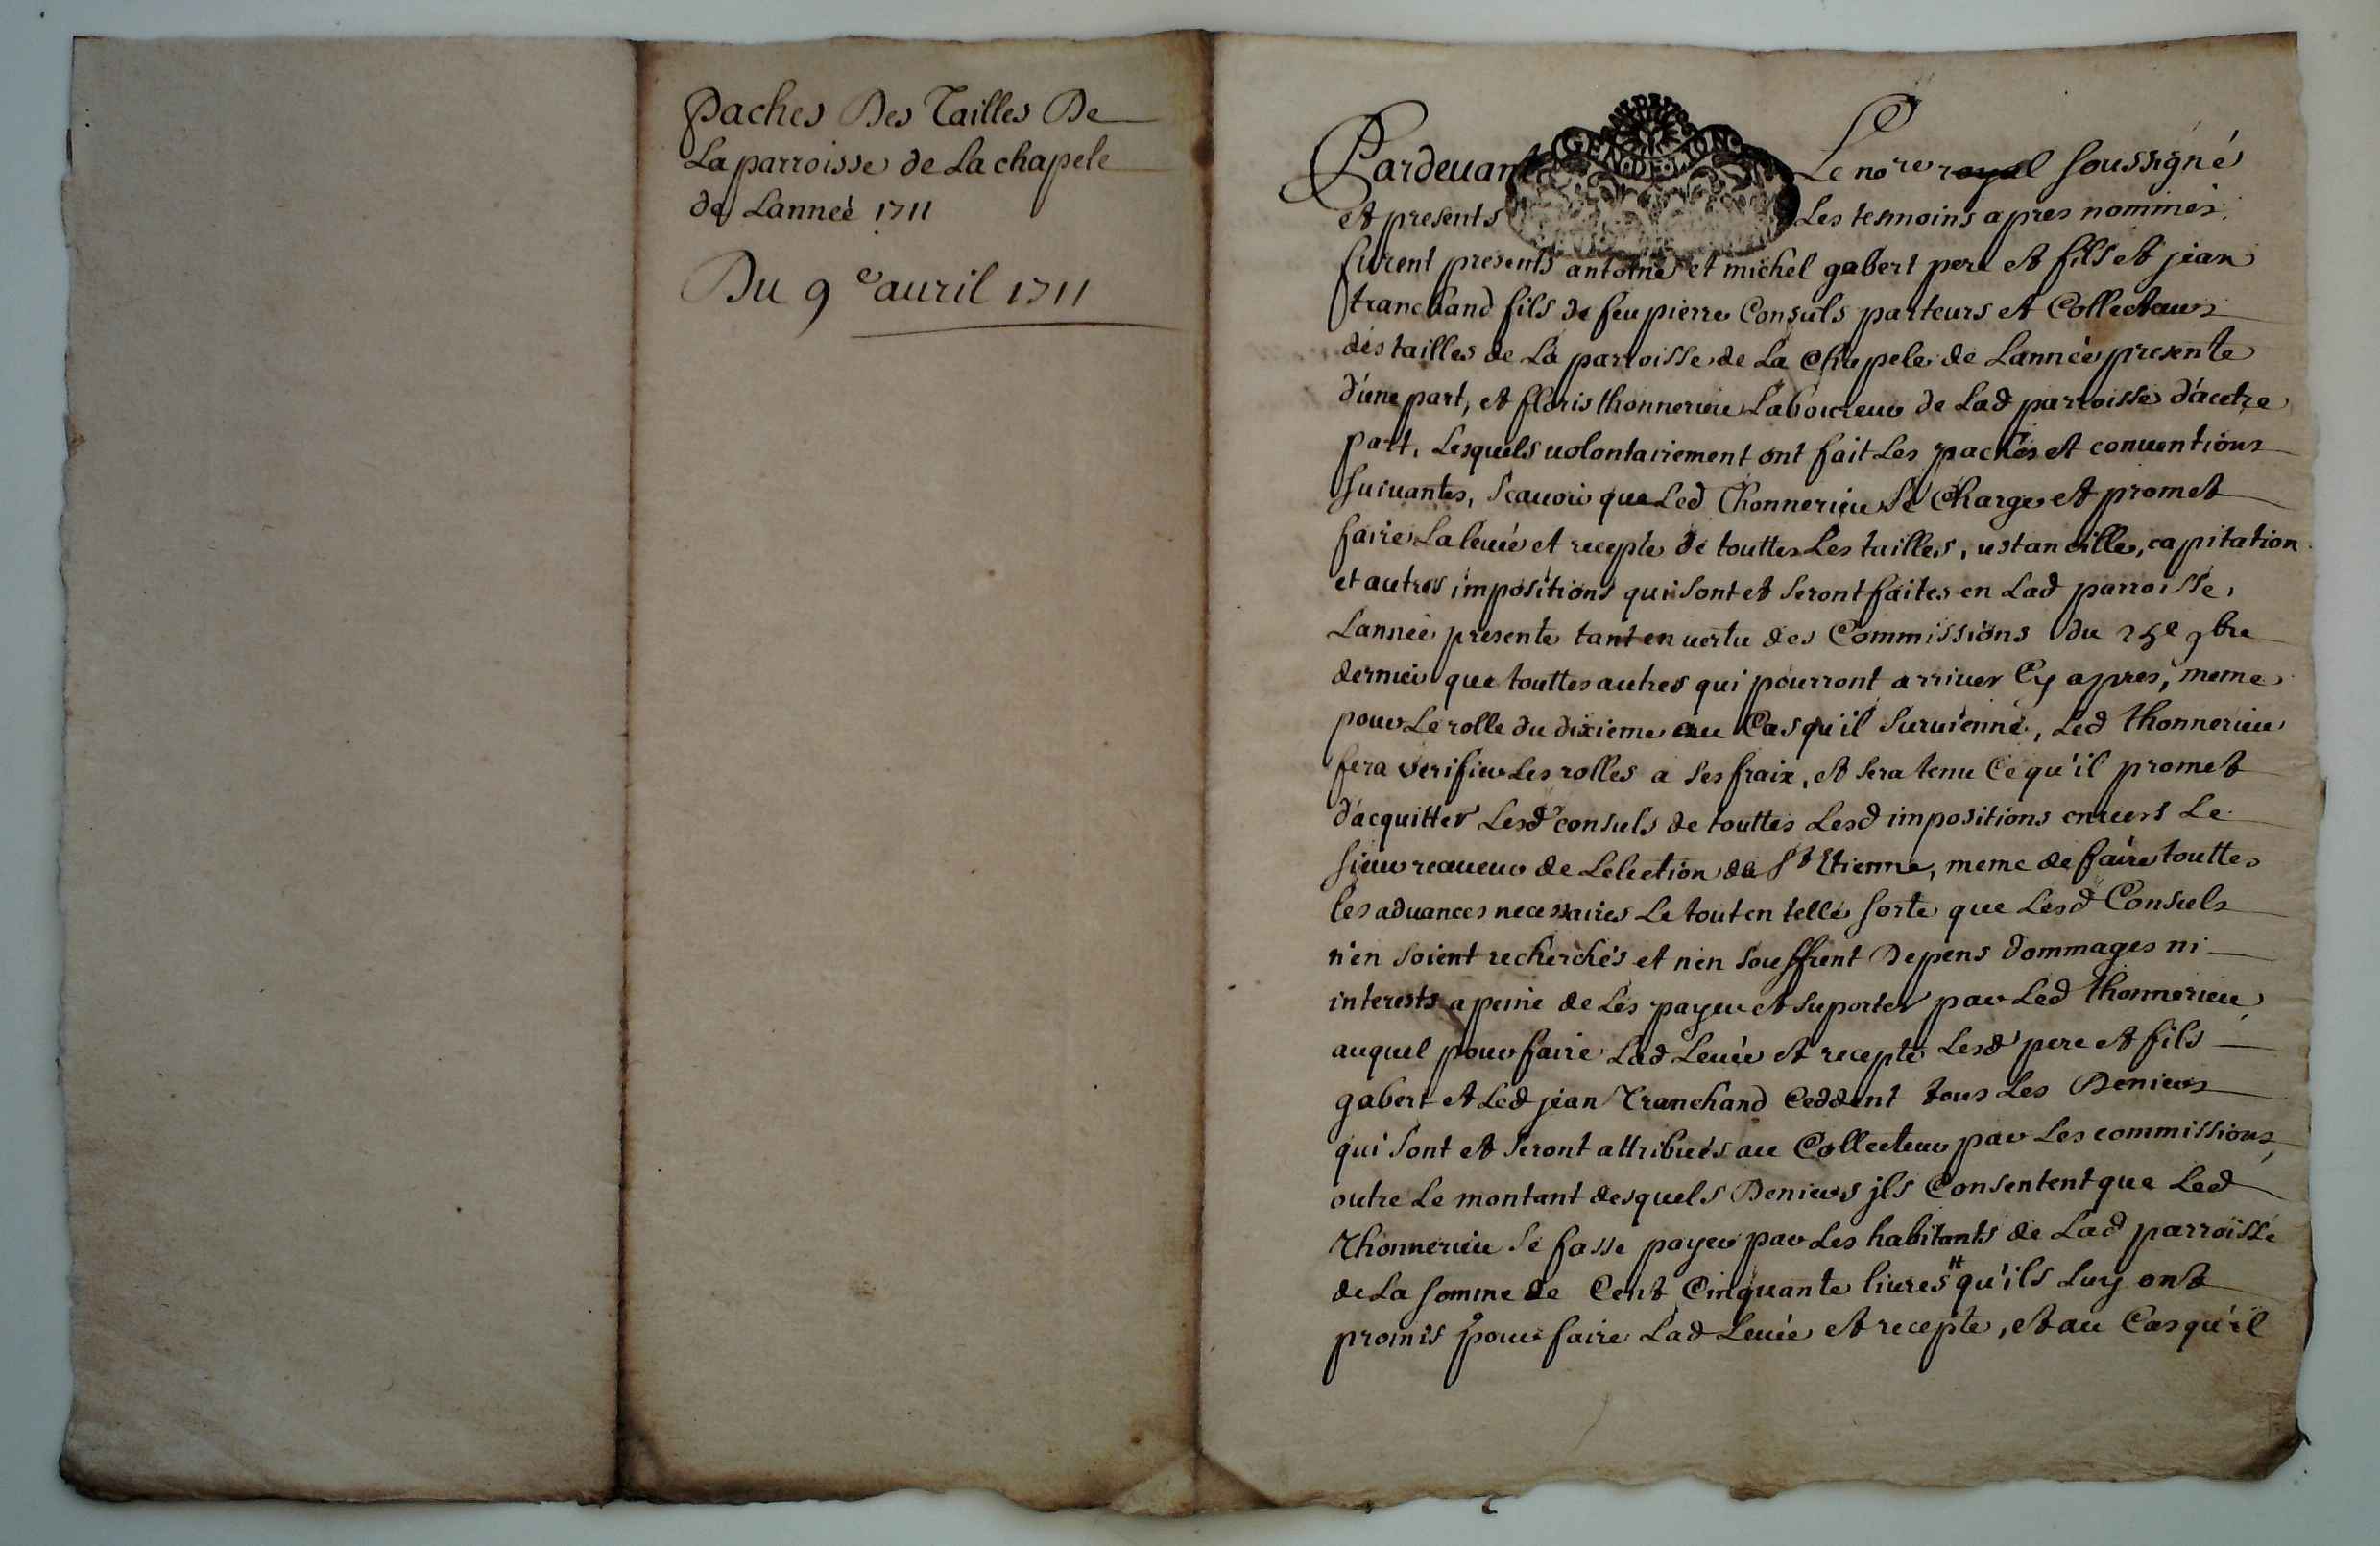 Paches Des Tailles De
La parroisse de La chapele
de Lanneé 1711
Du 9e auril 1711
GEN DE LION
Pardeuant Le nore royal soussigné
et presents Les tesmoins apres nommés
furent presents antoine et michel gabert pere et fils et jean
tranchand fils de feu pierre Consuls parteurs et Collecteurs
des tailles de La parroisse de La Chapele de Lanneé presente
d'une part, et floris thonnerieu Laboureur de Lad parroisse d'autre
part, Lesquels uolontairement ont fait Les paches et conuentions
suiuantes, scauoir que Led Thonnerieu se Charge et promet
faire La leuée et recepte de touttes Les tailles, ustancille, capitation
et autres impositions qui sont et seront faites en Lad parroisse,
Lanneé presente tant en uertu des Commissions du 25e 9bre
dernier que touttes autres qui pourront arriuer Cy apres, meme
pour Le rolle du dixieme au Cas qu'il suruienne, Led thonnerieu
fera verifier Les rolles a ses fraix, et sera tenu Ce qu'il promet
d'acquitter Lesd consuls de touttes Lesd impositions enuers Le
sieur receueur de Lelection de St Etienne, meme de faire touttes
les aduances necessaires Le tout en telle sorte que Lesd Consuls
n'en soient recherchés et n'en souffrent Depens dommages ni
interests a peine de Les payer et suporter par Led thonnerieu,
auquel pour faire Lad Leuée et recepte Lesd pere et fils
gabert et Led jean Tranchand Ceddent tous Les Deniers
qui sont et seront attribués au Collecteur par Les commissions,
outre Le montant desquels Deniers jls Consentent que Led
Thonnerieu se fasse payer par Les habitants de Lad parroisse
de La somme de Cent Cinquante liures tt qu'ils Luy ont
promis pour faire Lad Leuée et recepte, et au Cas qu'il